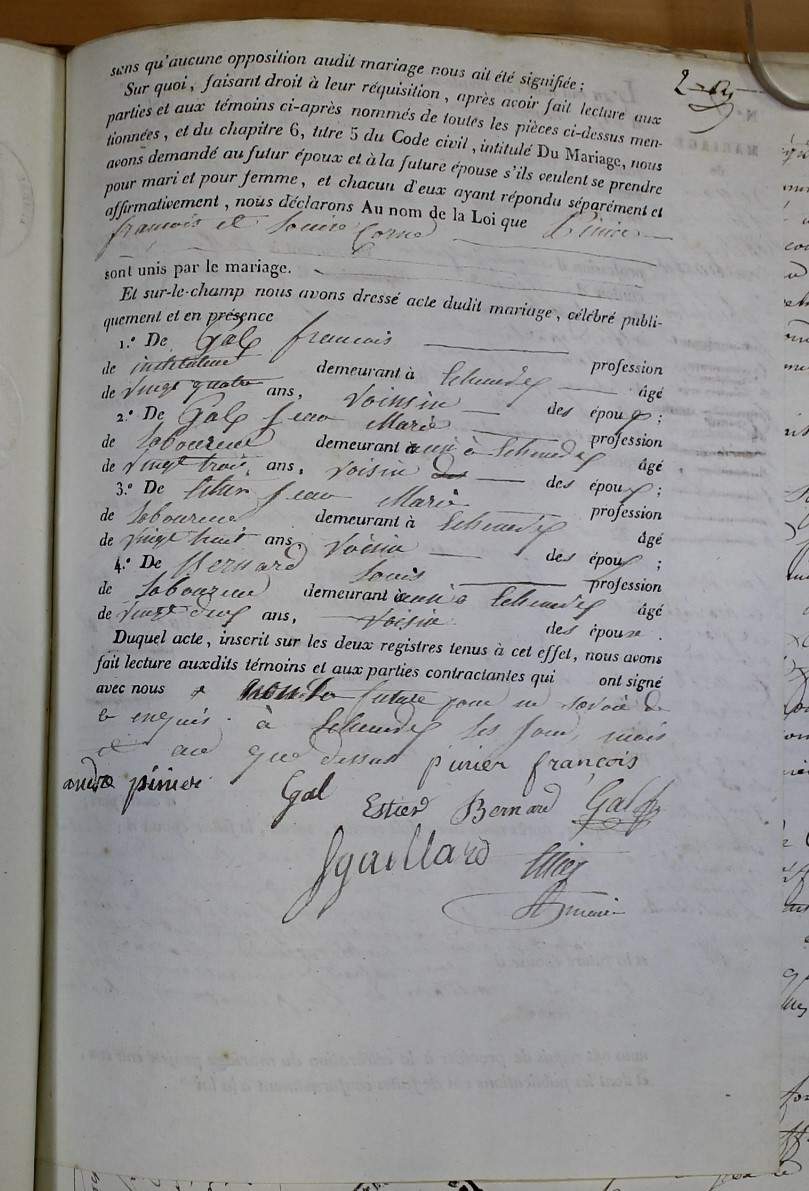 sans qu'aucune opposition audit mariage nous ait été signifiée;
Sur quoi, faisant droit à leur réquisition, après avoir fait lecture aux
parties et aux témoins ci-après nommés de toutes les pièces ci-dessus men-
tionnées, et du chapitre 6, titre 5 du Code civil, intitulé Du Mariage, nous
avons demandé au futur époux et à la future épouse s'ils veulent se prendre
pour mari et pour femme, et chacun d'eux ayant répondu séparément et
affirmativement, nous déclarons Au nom de la Loi que
françois et
sont unis par le mariage.
Et sur-le-champ nous avons dressé acte dudit mariage, célébré publi-
quement et en présence
1.º De Gal françois profession
de instituteur demeurant à âgé
de vingt quatre ans, voisin des époux;
2.º De Gal Jean Marie profession
de laboureur demeurant aussi à âgé
de vingt trois, ans, voisin des époux;
3.º De Jean Marie profession
de laboureur demeurant à âgé
de vingt huit ans voisin des époux;
4.º De Bernard Louis profession
de Laboureur demeurant aussi à âgé
de vingt deux ans, voisin des époux.
Duquel acte, inscrit sur les deux registres tenus à cet effet, nous avons
fait lecture auxdits témoins et aux parties contractantes qui ont signé
avec nous non la future pour ne savoir de
ce enquis. à les jour, mois
et an que dessus pinier françois
pinier Gal Bernard Gal
gaillard